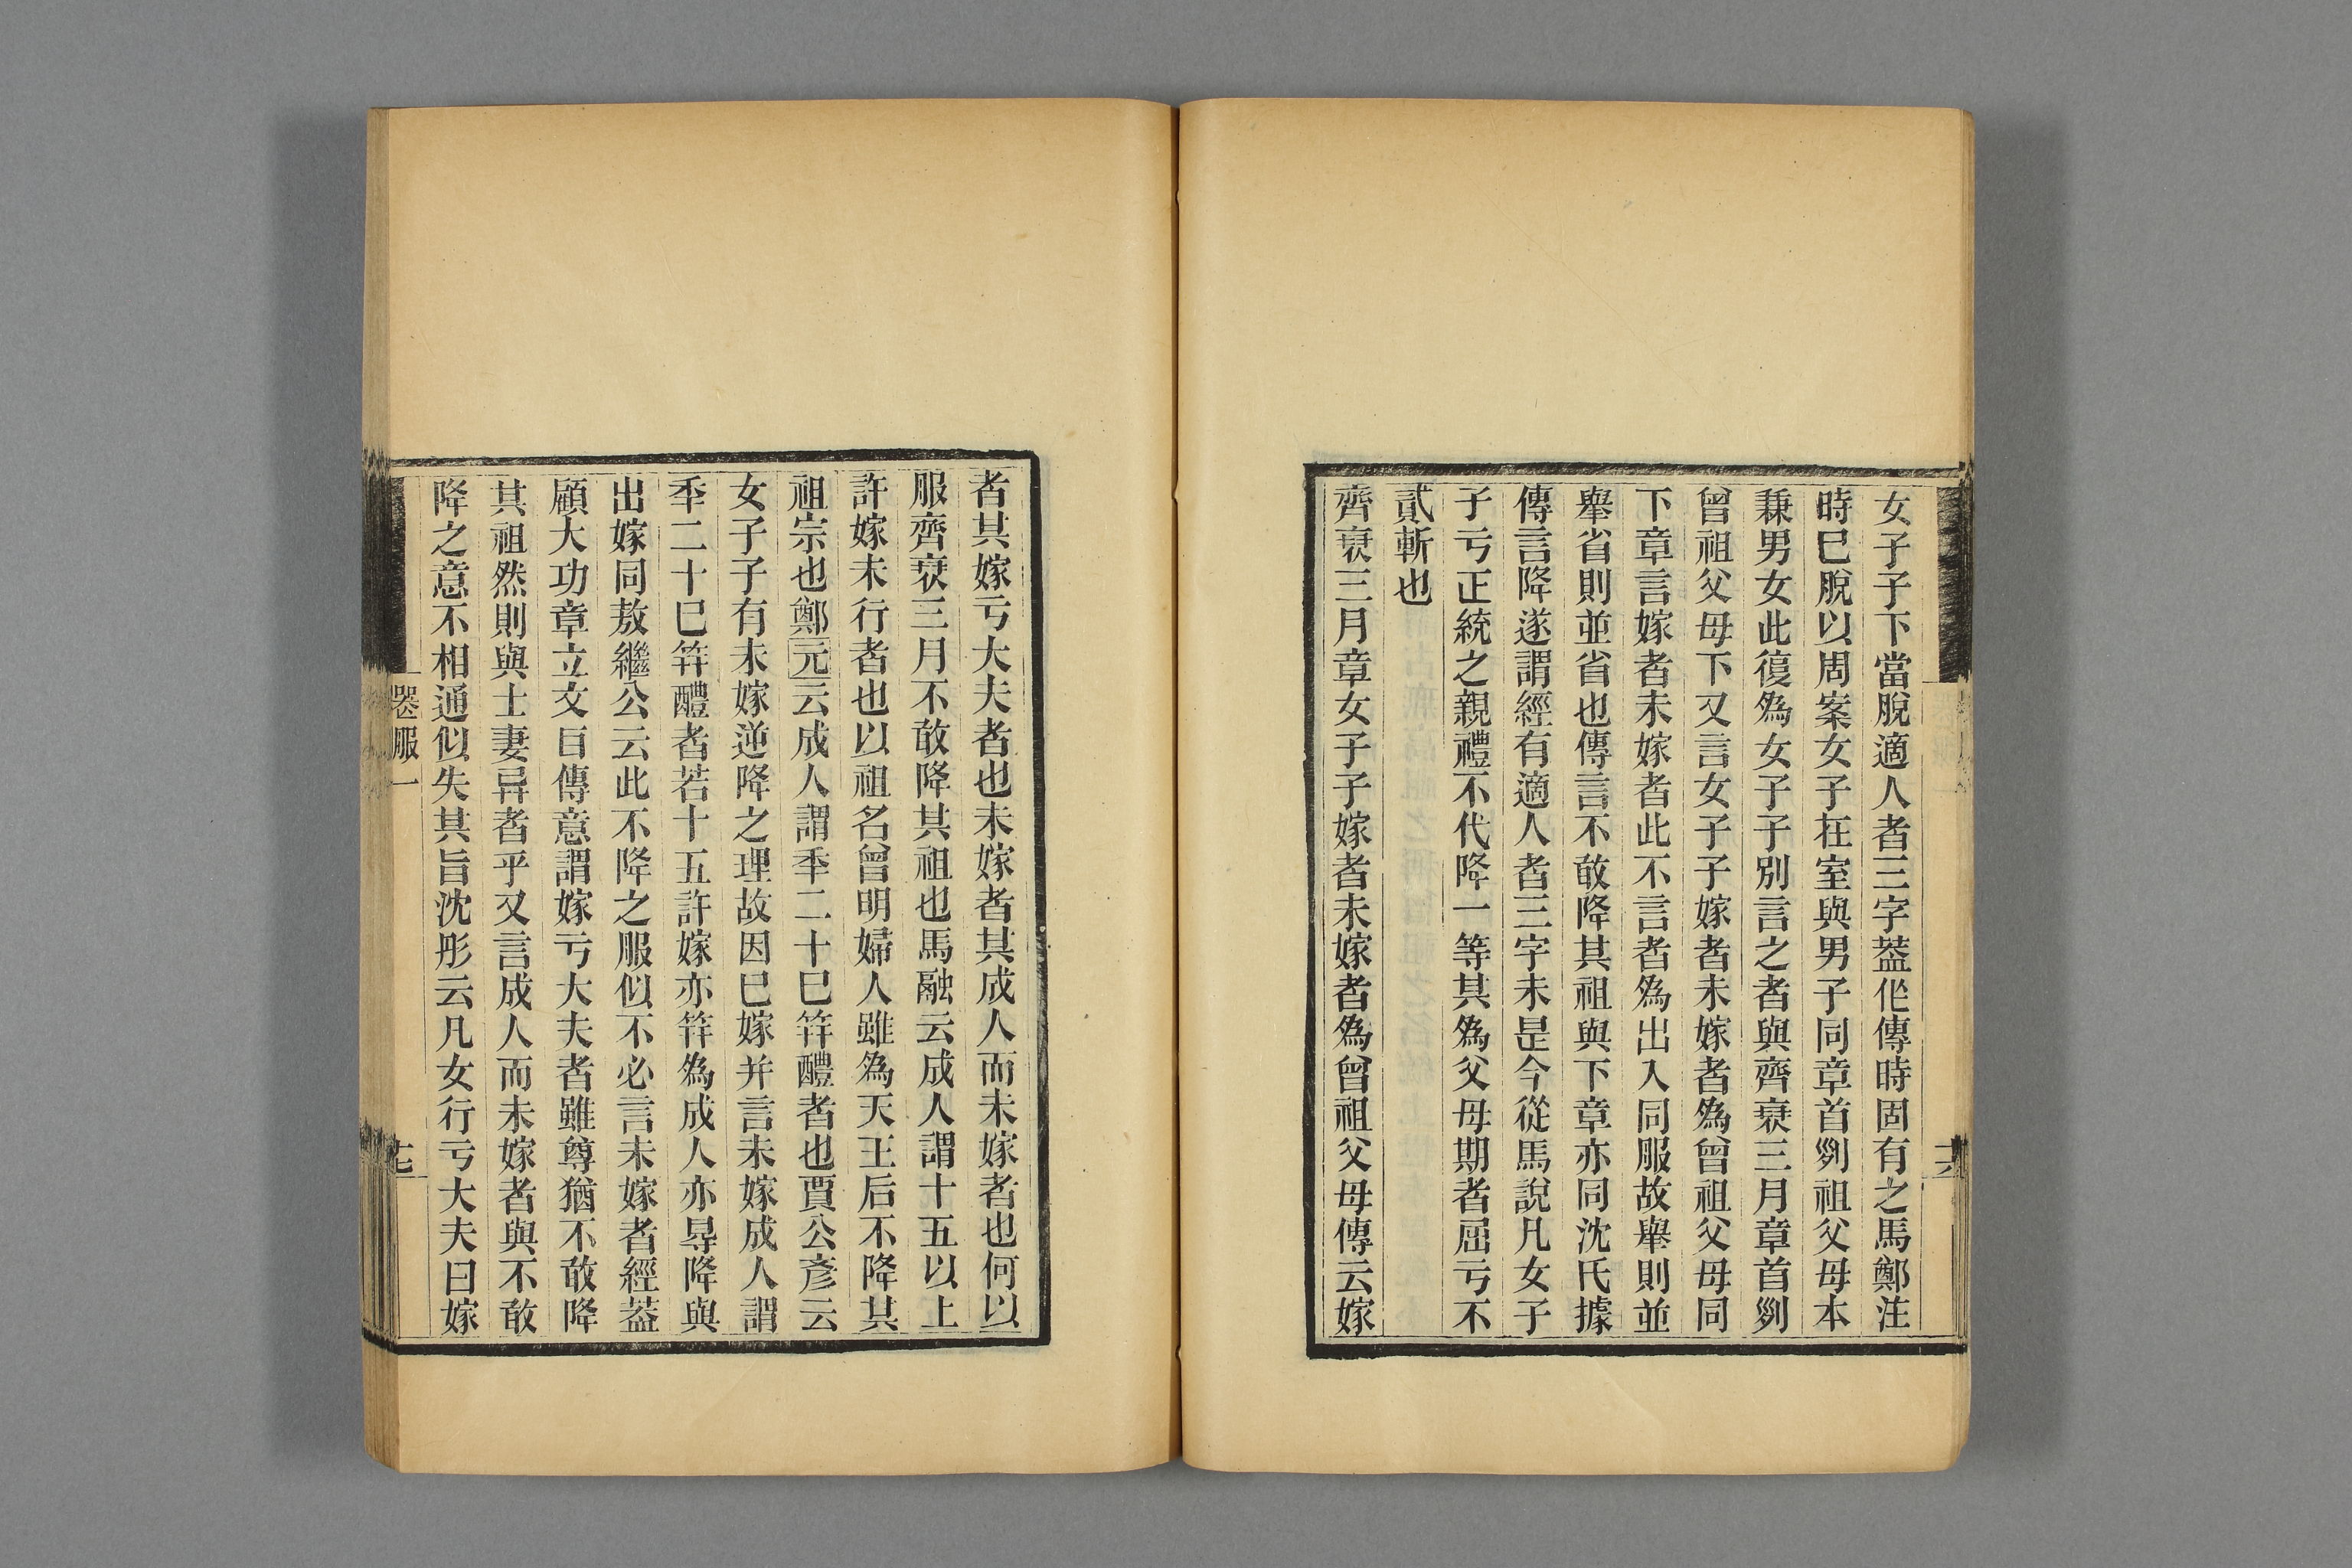 女子子下當脫適人者三字葢㐵傳時固有之馬鄭注
時巳脫以周案女子在室與男子同章首㓝祖父母本
兼男女此復爲女子子別言之者與齊衰三月章首㓝
曾祖父母下又言女子子嫁者未嫁者爲曾祖父母同
下章言嫁者未嫁者此不言者爲出入同服故舉則並
舉省則並省也傳言不敢降其祖與下章亦同沈氏據
傳言降遂謂經有適人者三字未是今從馬說凡女子
子亏正統之親禮不代降一等其爲父母期者屈亏不
貳斬也
齊衰三月章女子子嫁者未嫁者爲曾祖父母傳云嫁
十六
者其嫁亏大夫者也未嫁者其成人而未嫁者也何以
服齊衰三月不敢降其祖也馬融云成人謂十五以上
許嫁未行者也以祖名曾明婦人雖爲天王后不降其
祖宗也鄭元云成人謂秊二十巳筓醴者也賈公彥云
女子子有未嫁逆降之理故因巳嫁并言未嫁成人謂
秊二十巳筓醴者若十五許嫁亦筓爲成人亦㝵降與
出嫁同敖繼公云此不降之服似不必言未嫁者經葢
顧大功章立文㠯傳意謂嫁亏大夫者雖尊猶不敢降
其祖然則與士妻异者乎又言成人而未嫁者與不敢
降之意不相通似失其旨沈彤云凡女行亏大夫曰嫁
喪服一
十七